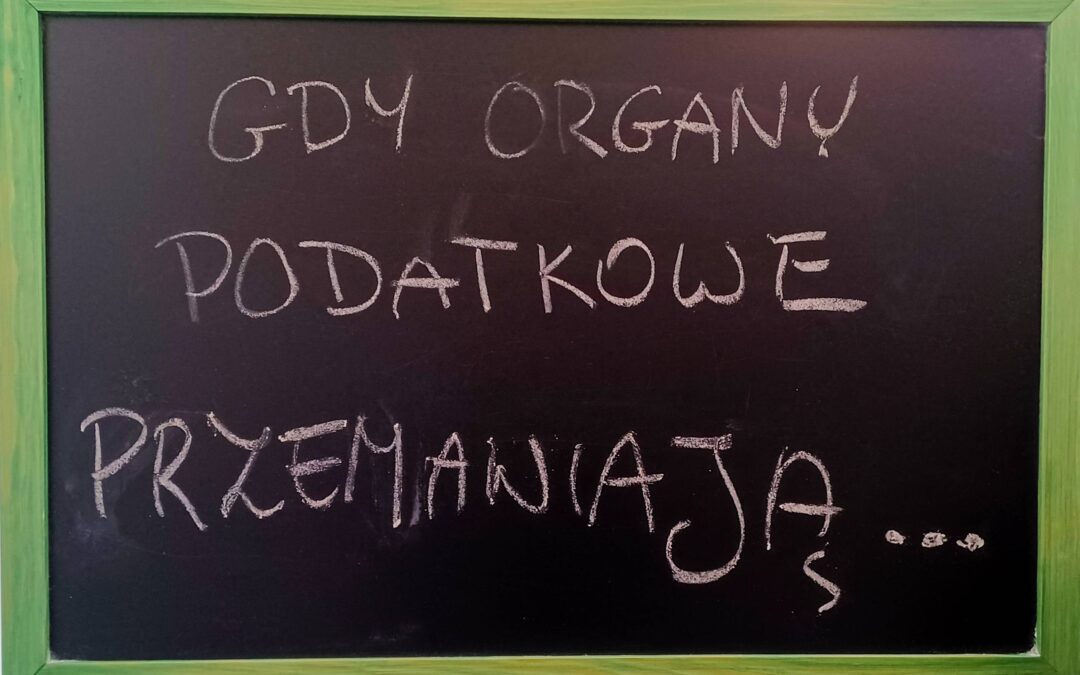 GDY ORGANY
PODATKOWE
PRZEMAWIAJĄ ...